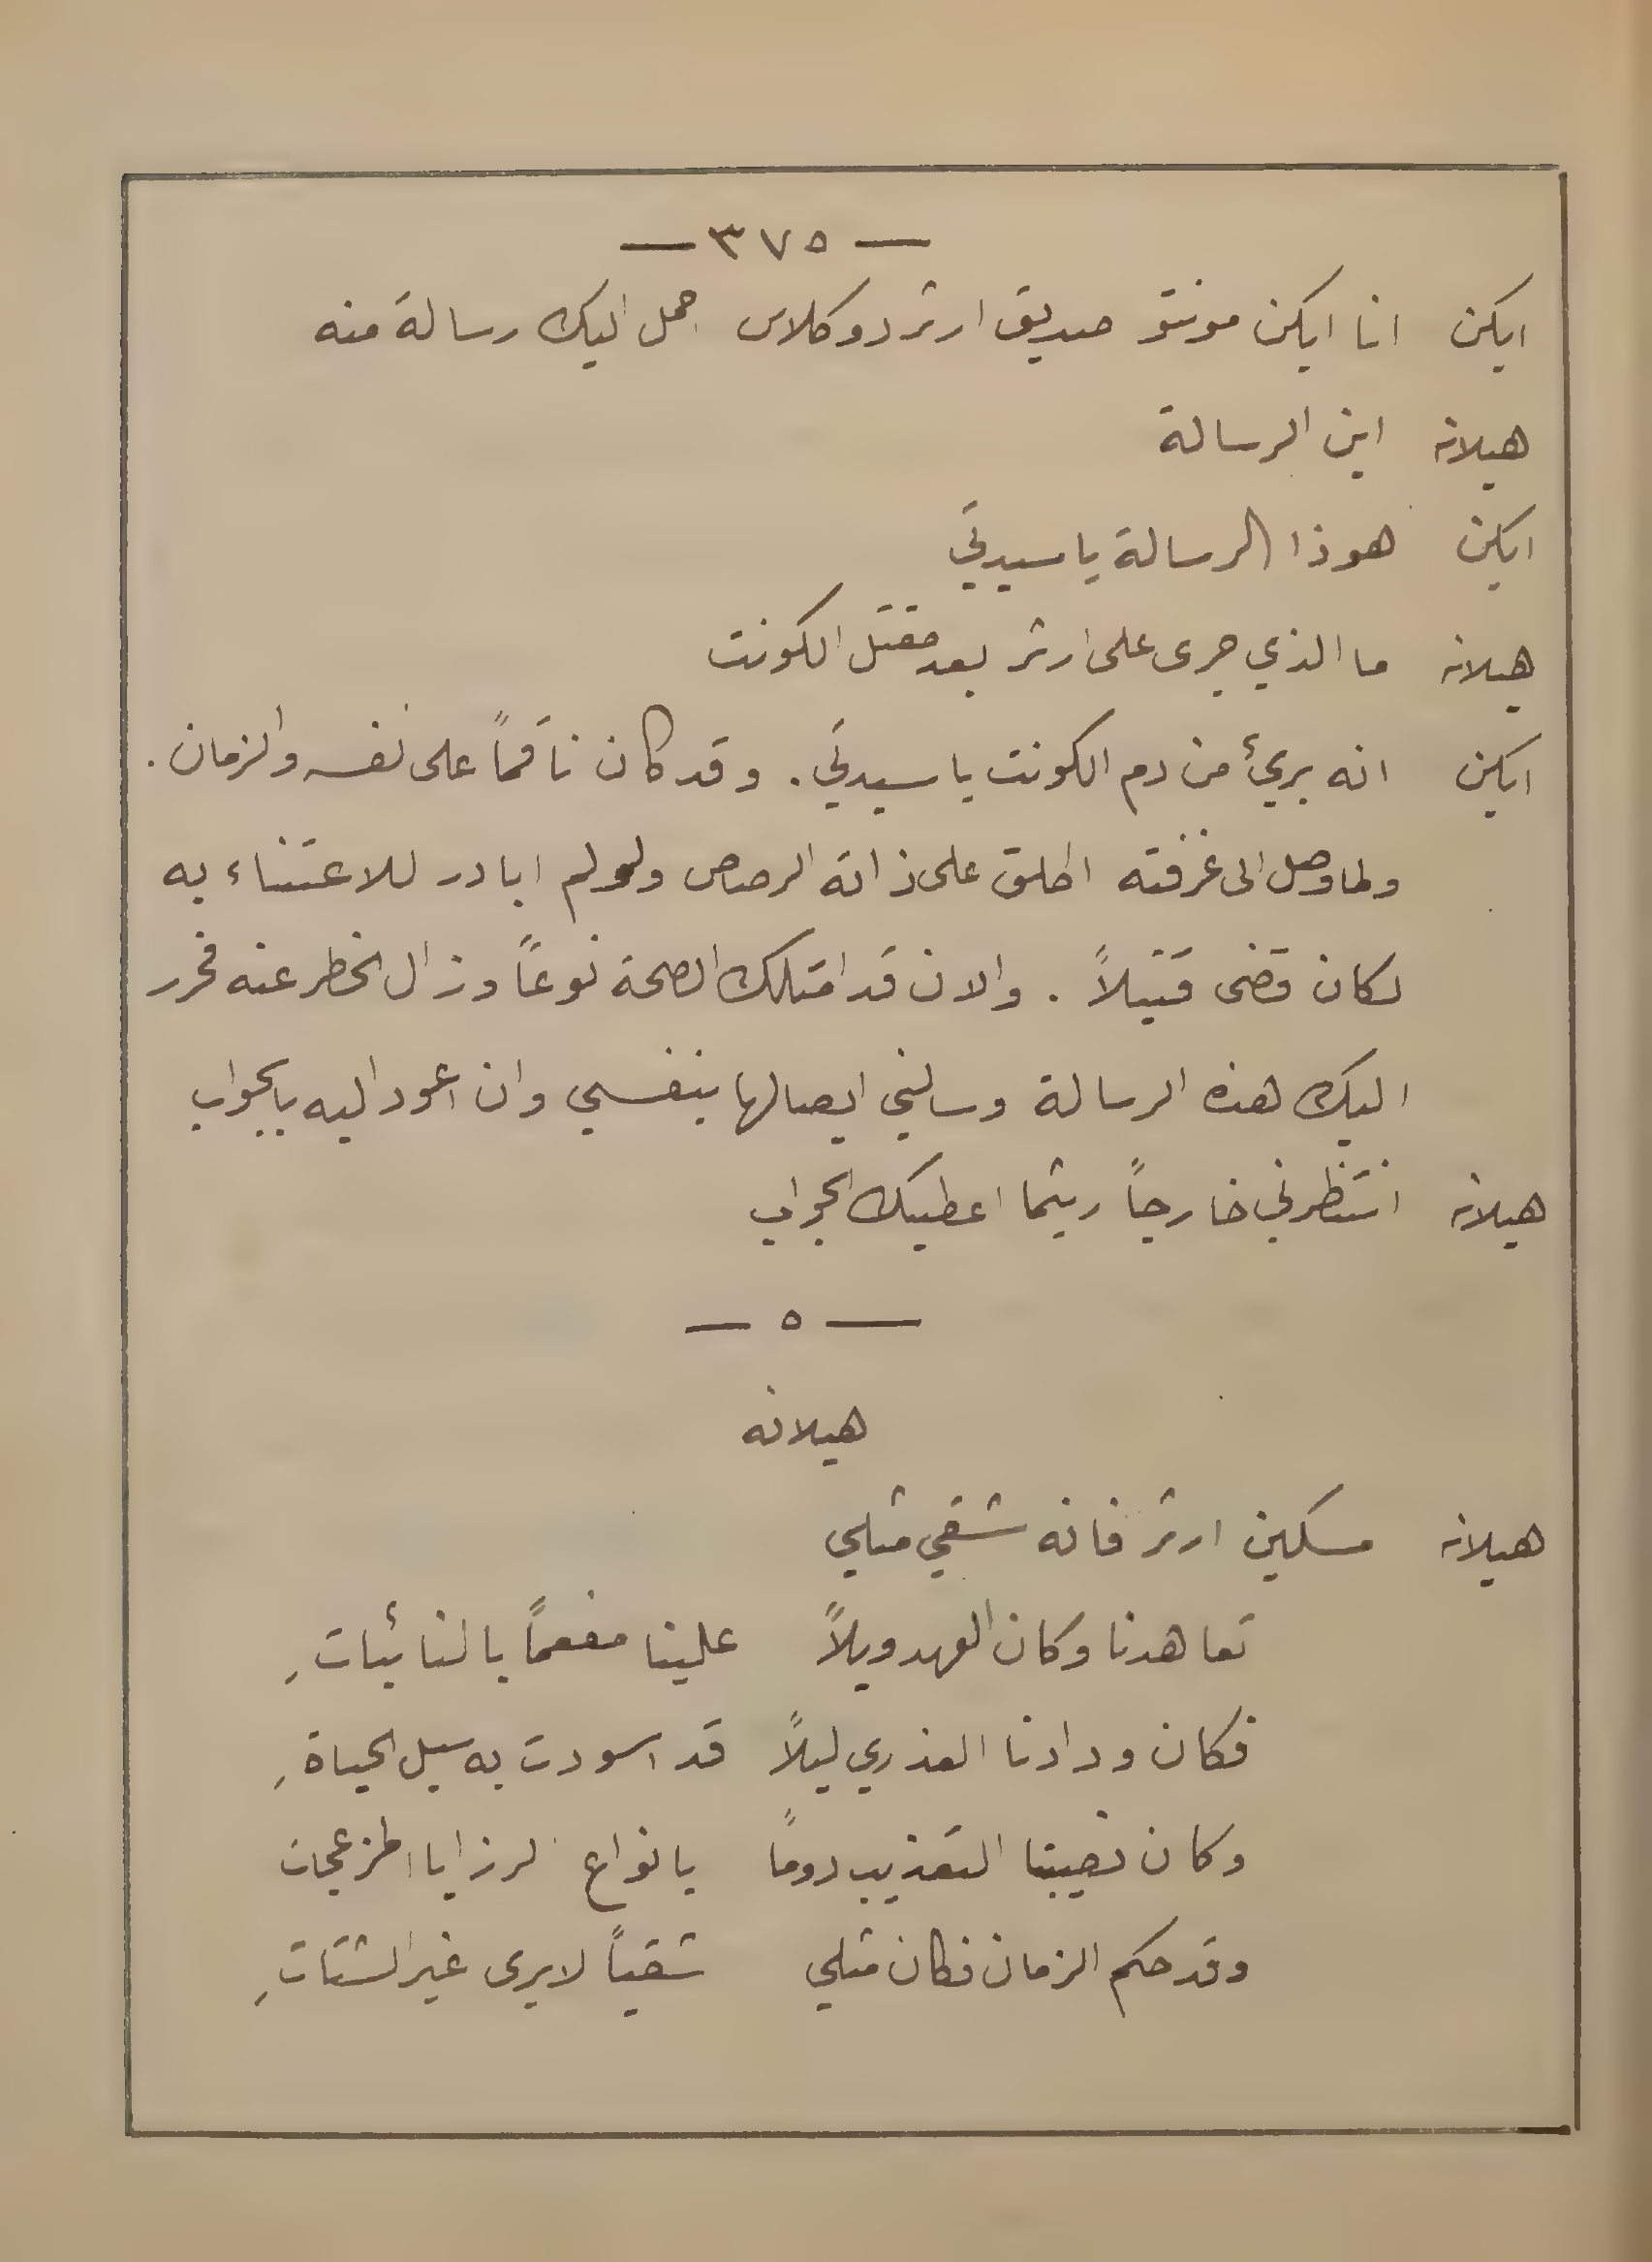 — ٣٧٥ —
ايكن انا ايكن مونتو صديق ارثر دوكلاس احمل اليك رسالة منه
هيلانه اين الرسالة
ايكن هوذا الرسالة يا سيدتي
هيلانه ما الذي جرى على ارثر بعد مقتل الكونت
ايكن انه بريئ من دم الكونت يا سيدتي . وقد كان ناقماً على نفسه والزمان .
ولما وصل الى غرفته اطلق على ذاته الرصاص ولو لم ابادر للاعتناء به
لكان قضى قتيلاً . والان قد امتلك الصحة نوعاً وزال الخطر عنه فحرر
اليك هذه الرسالة وسالني ايصالها بنفسي وان اعود اليه بالجواب
هيلانه انتظرني خارجاً ريثما اعطيك الجواب
— ٥ —
هيلانه
هيلانه مسكين ارثر فانه شقي مثلي
تعاهدنا وكان العهد ويلاً علينا مفعماً بالنائبات ِ
فكان ودادنا العذري ليلاً قد اسودت به سبل الحياة ِ
وكان نصيبنا التعذيب دوماً بانواع الرزايا المزعجات
وقد حكم الزمان فكان مثلي شقياً لا يرى غير الشتات ِ